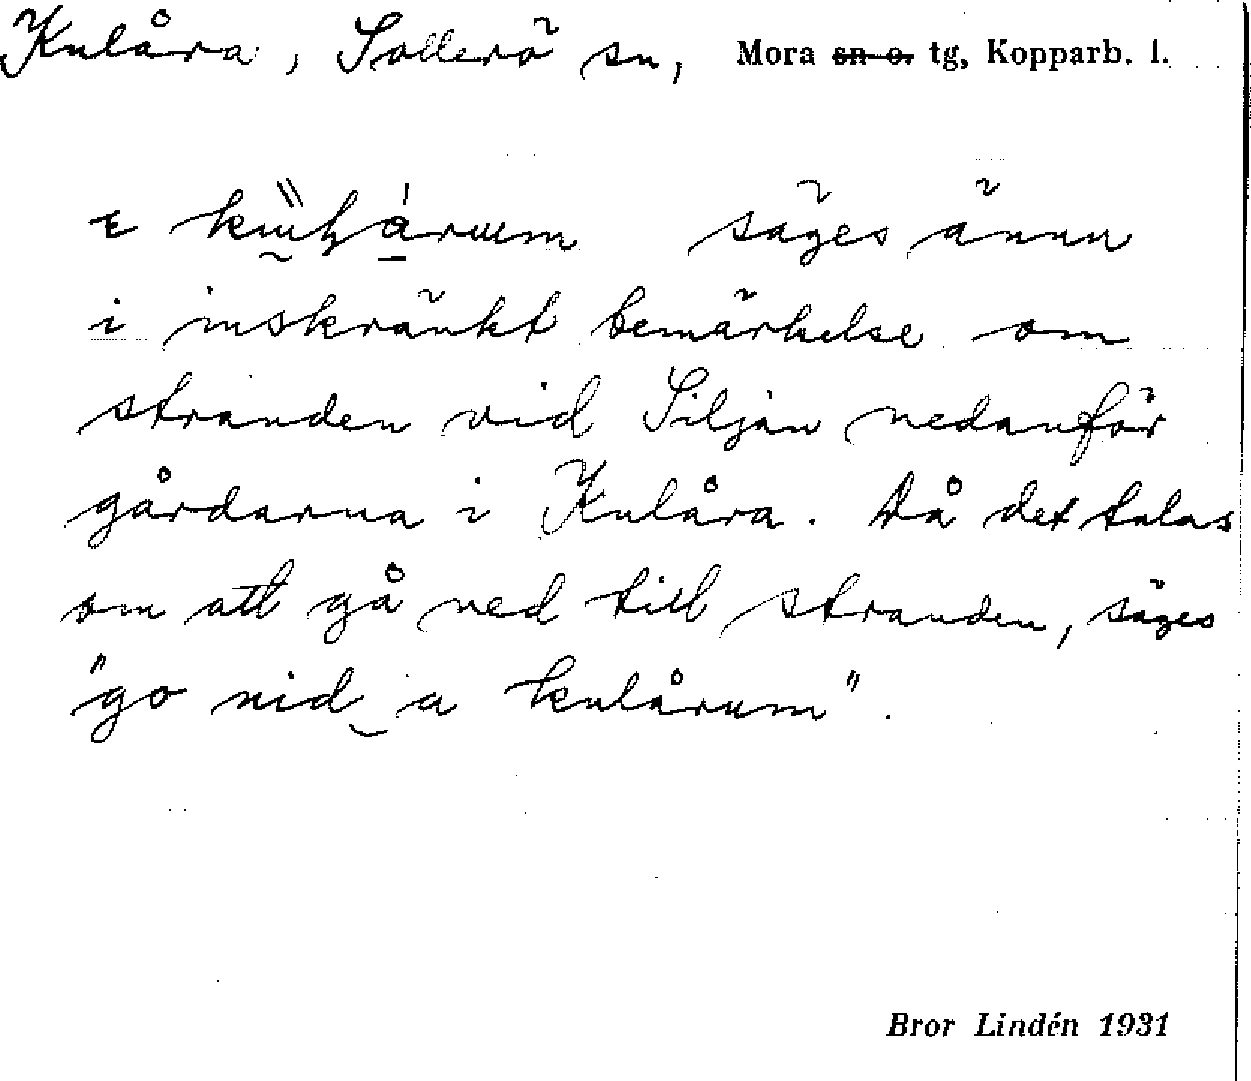 Kulåra, Sollerö sn, Mora sn o. tg, Kopparb. l.
säges ännu
i inskränkt bemärkelse om
stranden vid Siljan nedanför
gårdarna i Kulåra. Då det talas
om att gå ned till stranden, säges
"go nid‿a kulårum".
Bror Lindén 1931